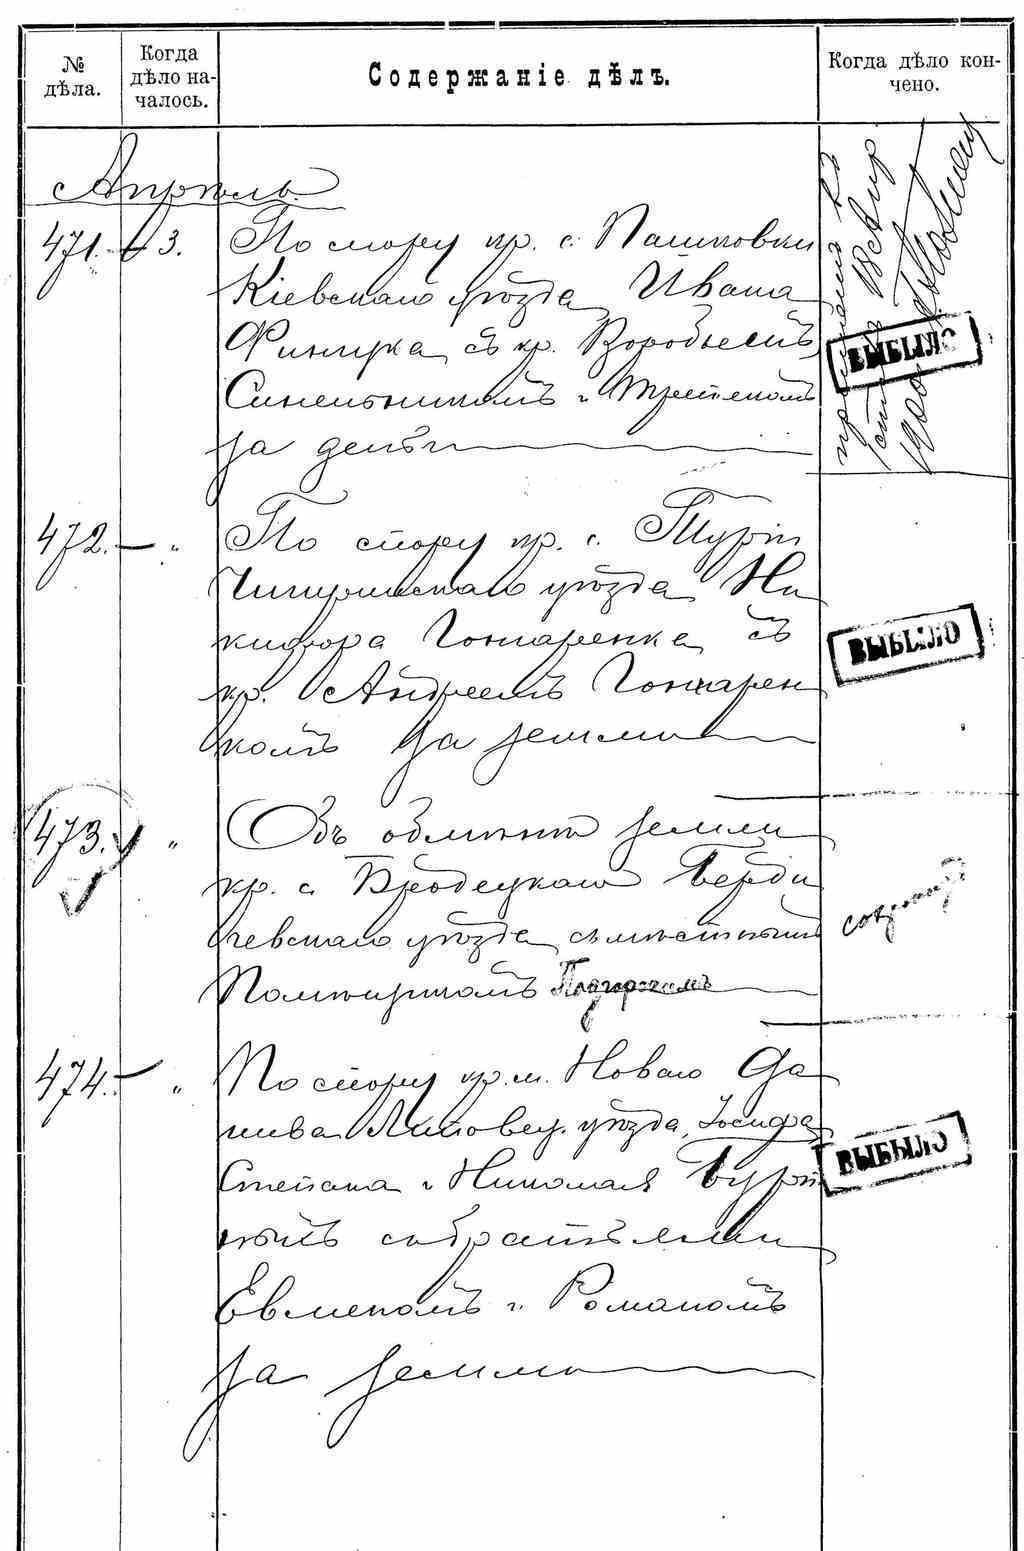 № дѣла.
Когда дѣло началось.
Содержаніе дѣлъ.
Когда дѣло кончено.
Апрѣль.
471. — 3. По спору кр. с. Пашковки
Кіевскаго уѣзда Ивана
Финицка съ кр. Воробьемъ,
Синельникомъ и
за
ВЫБЫЛО
472. — " По спору кр. с.
Чигиринскаго уѣзда Ни
кифора Гончаренка съ
кр. Андреемъ Гончарен
комъ за землю
ВЫБЫЛО
473. " Объ обмѣнѣ земли
кр. с. Бродецкаго Берди
чевскаго уѣзда съ мѣстнымъ
Помѣщикомъ
474. — " По спору кр. м. Новаго Да
шева Липовец. уѣзда, Іосифа,
Степана и Николая
съ братьями
Евменомъ и Романомъ
за землю
ВЫБЫЛО